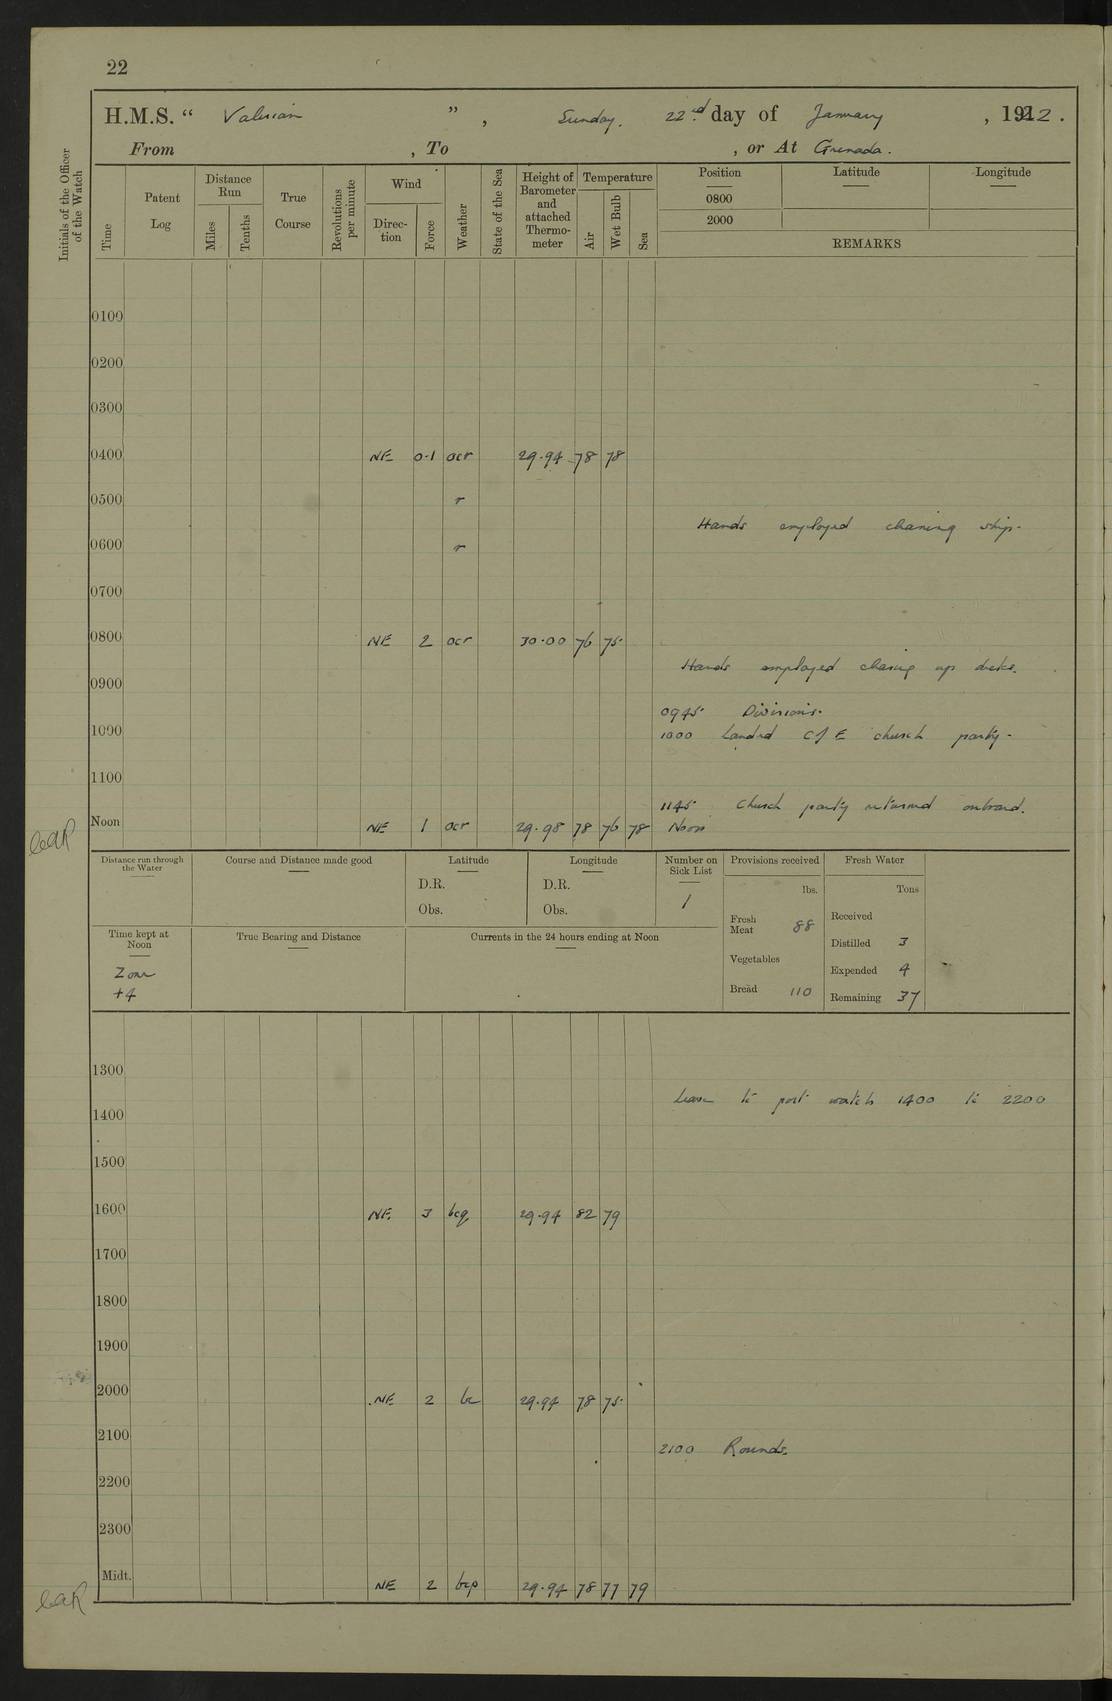 22
H.M.S. “ Valerian ” , Sunday. 22nd day of January , 1922 .
From , To , or At Grenada.
Initials of the Officer of the Watch
Time
Patent Log
Distance Run
Miles
Tenths
True Course
Revolutions per minute
Wind
Direction
Force
Weather
State of the Sea
Height of Barometer and attached Thermometer
Temperature
Air
Wet Bulb
Sea
Position
Latitude
Longitude
0800
2000
REMARKS
0100
0200
0300
0400 NE 0·1 ocr 29·94 78 78
0500 r
Hands employed cleaning ship.
0600 r
0700
0800 NE 2 ocr 30·00 76 75
Hands employed clearing up decks.
0900
0945 Divisions.
1000 1000 Landed C of E church party.
1100
1145 Church party returned onboard.
Noon NE 1 ocr 29·98 78 76 78 Noon
Distance run through the Water
Course and Distance made good
Latitude
Longitude
Number on Sick List
Provisions received
Fresh Water
lbs.
Tons
D.R. D.R.
Obs. Obs. 1
Received
Fresh Meat 88
Time kept at Noon
True Bearing and Distance
Currents in the 24 hours ending at Noon
Distilled 3
Vegetables
Zone
Expended 4
+4
Bread 110
Remaining 37
1300
Leave to port watch 1400 to 2200
1400
1500
1600 NE 3 bcq 29·94 82 79
1700
1800
1900
2000 NE 2 bc 29·94 78 75
2100
2100 Rounds.
2200
2300
Midt. NE 2 bcp 29·94 78 77 79